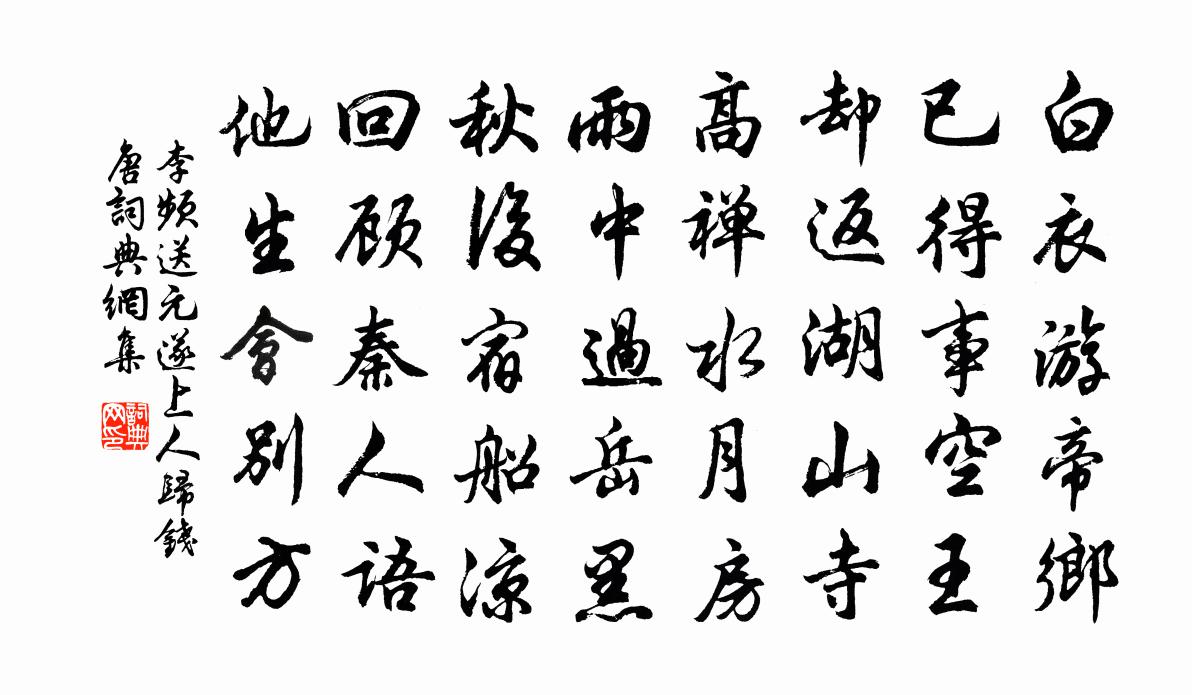 白衣游帝鄉
已得事空王
却返湖山寺
高禅水月房
雨中過岳黑
秋後宿船涼
回顾秦人語
他生會別方
李頻送元遂上人歸錢
唐詞典網集
詞典网印